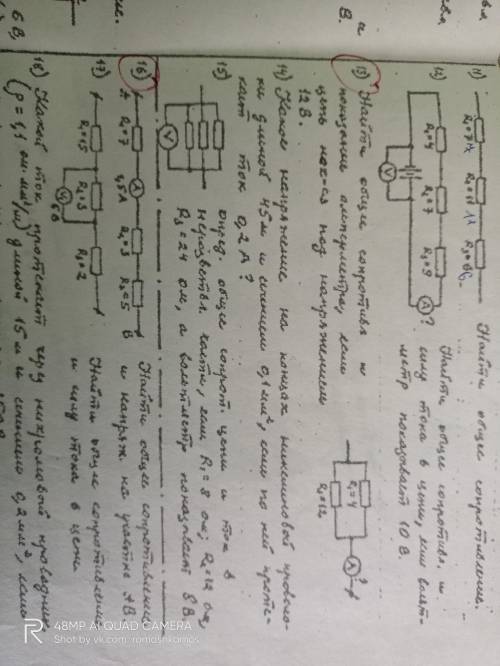 11) R₁=7 R₂=11 R₃=86 Найти общее сопротивление.
12) R₁=4 R₂=7 R₃=9 V A ?
Найти общее сопротивл. и
силу тока в цепи, если вольт-
метр показывает 10 В.
13) Найти общее сопротивл и
показания амперметра, если
цепь нах-ся под напряжением
12 В.
R₁=4 R₂=12 A ?
14) Какое напряжение на концах никелиновой проволо-
ки длиной 45 м и сечением 0,1 мм², если по ней проте-
кает ток 0,2 А?
15) V
опред. общее сопрот. цепи и ток в
неразветвл. части, если R₁=8 ом; R₂=12 ом,
R₃=24 ом, а вольтметр показывает 8 В
16) A R₁=7 A 1,5 A R₂=3 R₃=5 B
Найти общее сопротивление
и напряж. на участке AB
17) R₁=15 R₂=3 R₃=2 V 6 В
Найти общее сопротивление
и силу тока в цепи
18) Какой ток протекает через нихромовый проводник
(ρ=1,1 ом·мм²/м) длиной 15 м и сечением 0,2 мм², если
48MP AI QUAD CAMERA
Shot by vk.com: romashkamos